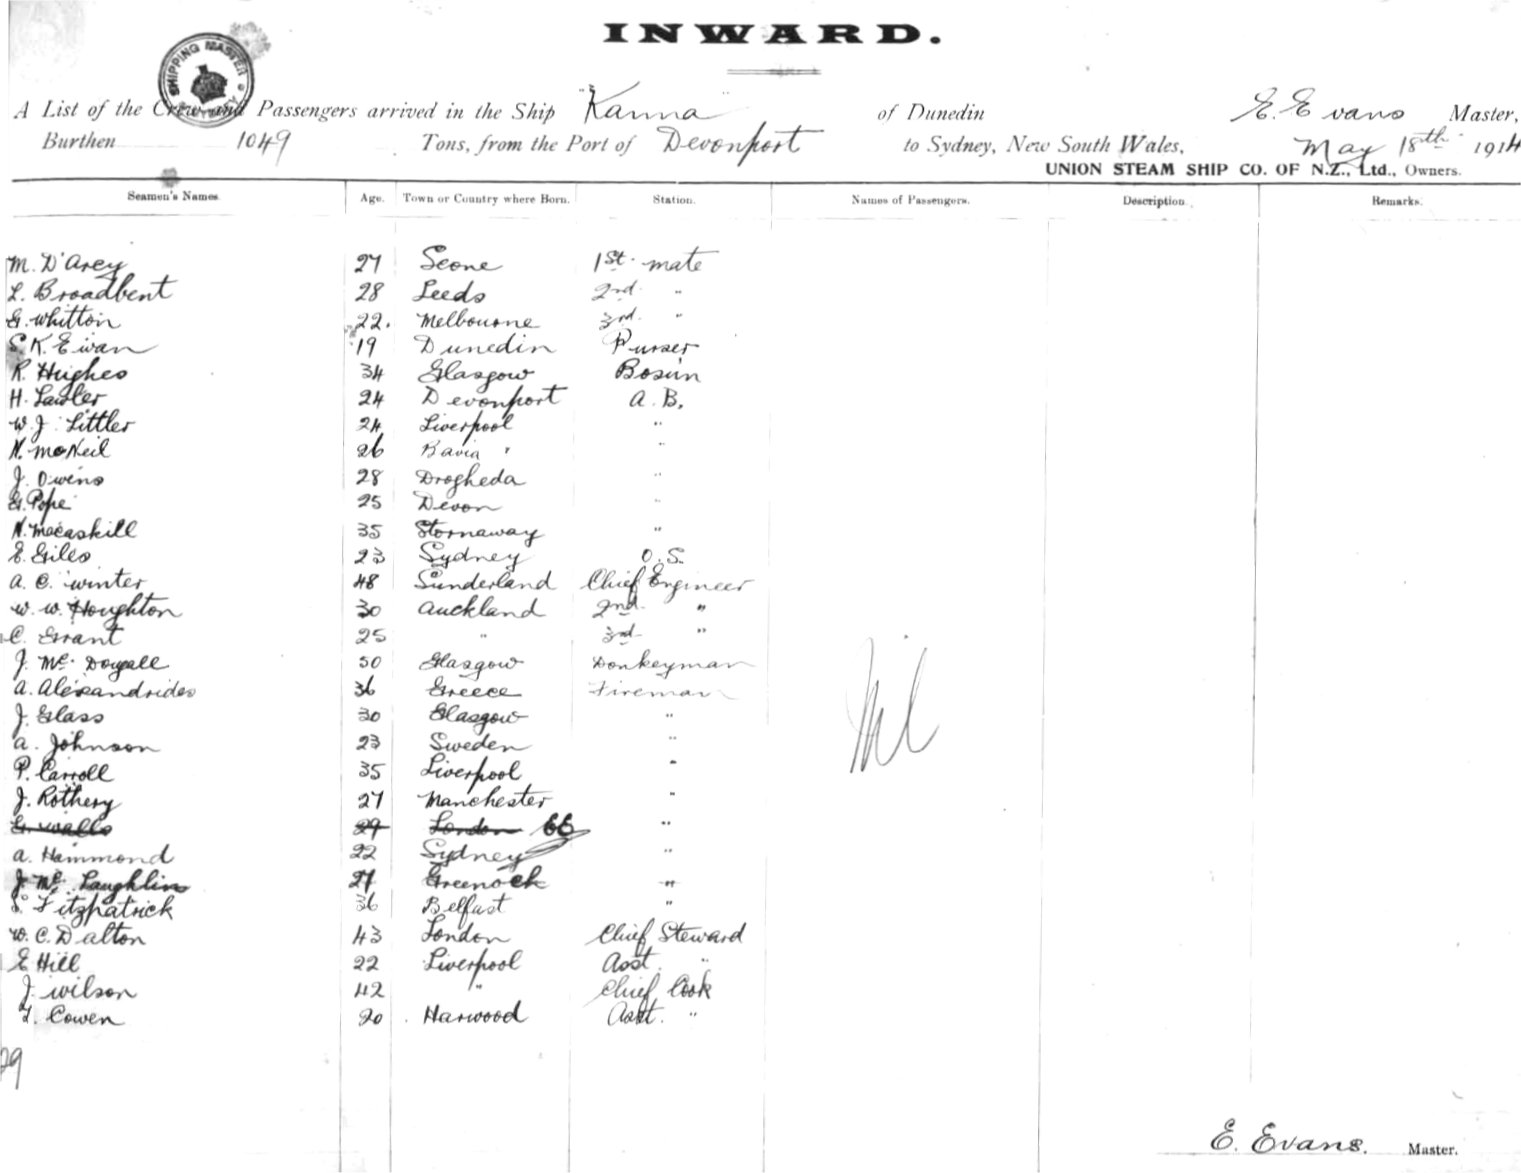 INWARD.
SHIPPING MASTER
A List of the Crew and Passengers arrived in the Ship "Kanna" of Dunedin E. Evans Master,
Burthen 1049 Tons, from the Port of Devonport to Sydney, New South Wales, May 18th 1914
UNION STEAM SHIP CO. OF N.Z., Ltd., Owners.
Seamen's Names. Age. Town or Country where Born. Station. Names of Passengers. Description. Remarks.
M. D'Arcy 27 Scone 1st. mate
L. Broadbent 28 Leeds 2nd. "
G. Whitton 22. Melbourne 3rd. "
S. K. Ewan 19 Dunedin Purser
R. Hughes 34 Glasgow Bosun
H. Lawler 24 Devonport A.B.
W. J. Littler 24 Liverpool "
N. McNeil 26 "
J. Owens 28 Drogheda "
G. Pope 25 Devon "
N. Macaskill 35 Stornaway "
E. Giles 23 Sydney O.S.
A. C. Winter 48 Sunderland Chief Engineer
W. W. Houghton 30 Auckland 2nd. "
C. Grant 25 " 3rd "
J. Mc. Dougall 50 Glasgow Donkeyman
A. Alexandrides 36 Greece Fireman
J. Glass 30 Glasgow "
A. Johnson 23 Sweden "
P. Carroll 35 Liverpool "
J. Rothery 27 Manchester "
G. Walls 29 London "
A. Hammond 22 Sydney "
J. Mc. Laughlin 27 Greenock "
S. Fitzpatrick 36 Belfast "
W. C. Dalton 43 London Chief Steward
E Hill 22 Liverpool Asst. "
J. Wilson 42 " Chief Cook
T. Cowen 20 Harwood Asst. "
Nil
29
E. Evans. Master.